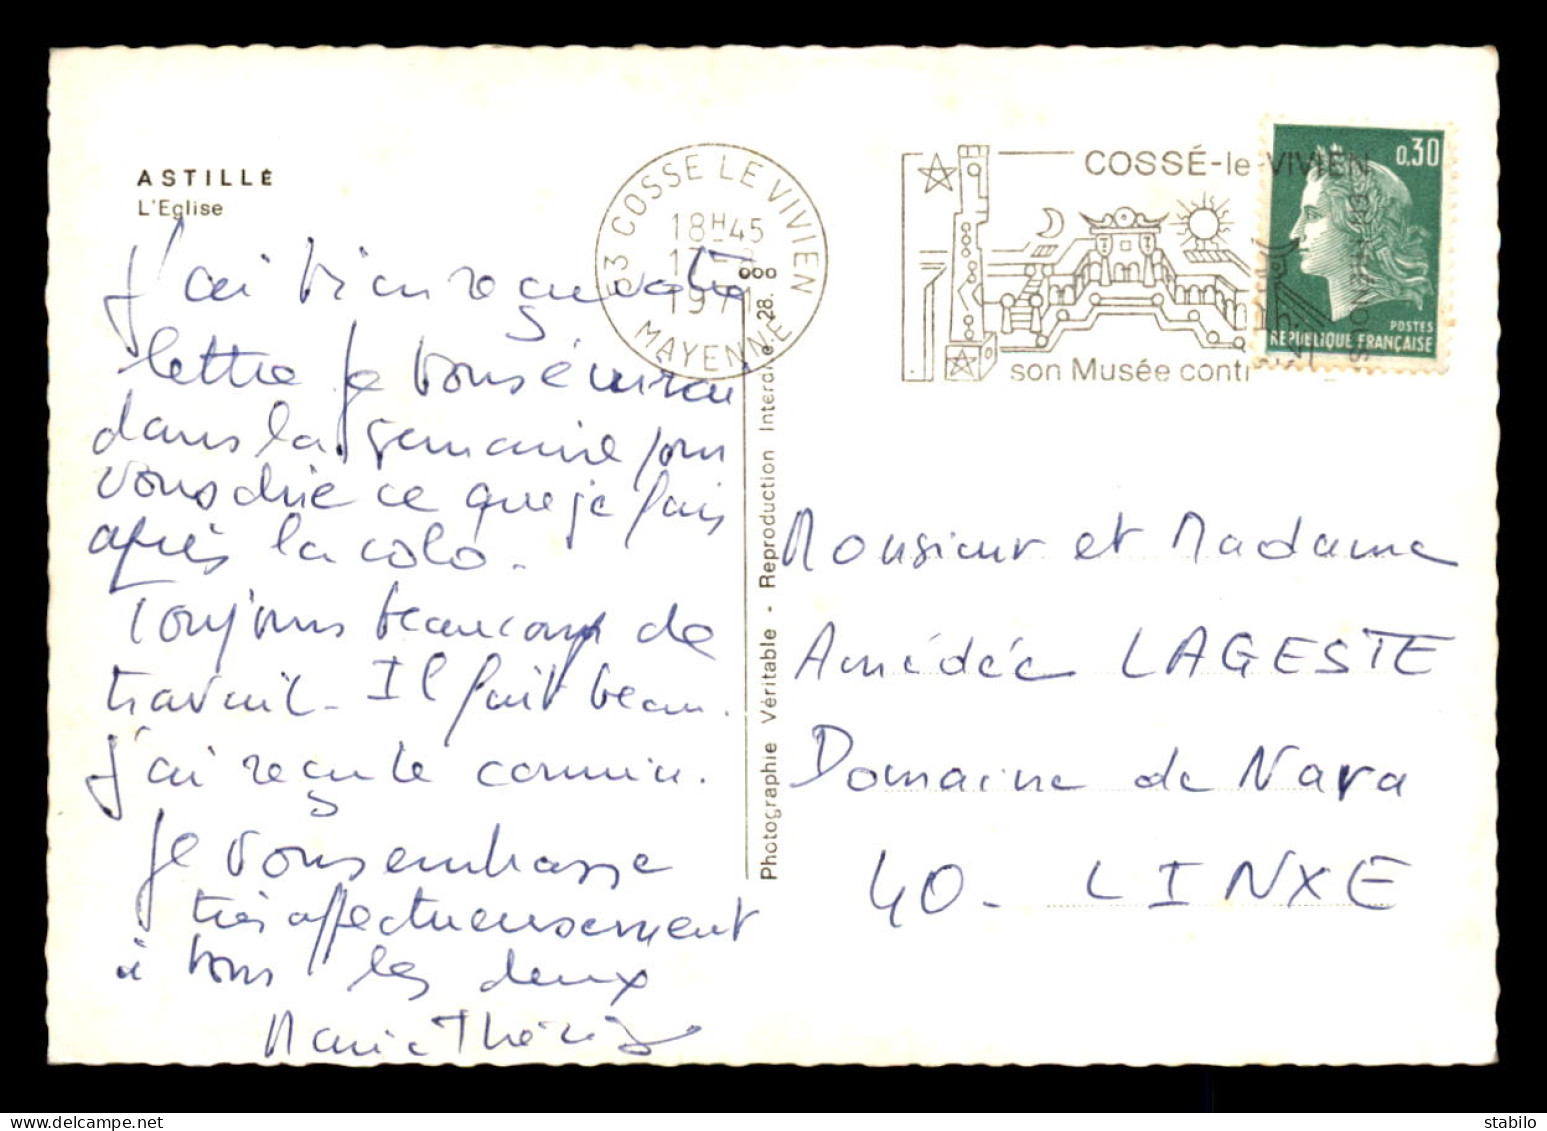 ASTILLÉ
L'Eglise
J'ai bien reçu votre
lettre je vous écrirai
dans la semaine pour
vous dire ce que je fais
après la colo.
Toujours beaucoup de
travail. Il fait beau.
J'ai reçu le
Je vous embrasse
très affectueusement
à tous les deux
Marie Thérèse
53 COSSE LE VIVIEN
18H45
1971
MAYENNE
Photographie Véritable - Reproduction Interdite 28.
COSSÉ-le-VIVIEN
son Musée conti
0,30
POSTES
REPUBLIQUE FRANÇAISE
Monsieur et Madame
Amédée LAGESTE
Domaine de Nara
40 - LINXE
stabilo